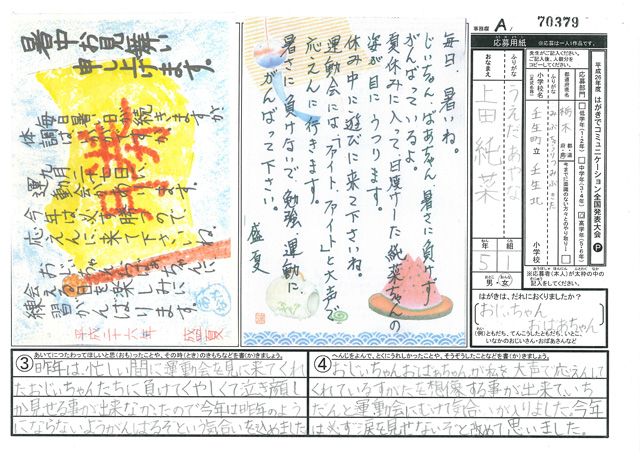 暑中お見舞い
申し上げます。
毎日暑い日が続きますが
体調はいかがですか。
九月二十七日に
運動会があります。
今年は必ず勝つので
応えんに来て下さいね。
おじいちゃんおばあちゃんに
会える日を楽しみに
練習がんばります。
平成二十六年 盛夏
毎日、暑いね。
じいちゃん、ばあちゃん、暑さに負けず
がんばっているよ。
夏休みに入って日焼けした純菜ちゃんの
姿が目にうつります。
休み中に遊びに来て下さいね。
運動会には、ファイト、ファイトと大声で
応えんに行きます。
暑さに負けないで勉強、運動に
がんばって下さい。
盛夏
事務欄 A 70379
応募用紙
※応募は一人1作品です。
平成26年度 はがきでコミュニケーション全国発表大会 P
応募部門
低学年(1・2年)
中学年(3・4年)
高学年(5・6年)
都道府県名
栃木
都・道・府・県
小学校名
壬生町立 壬生北
小学校
ふりがな
うえだあやな
おなまえ
上田 純菜
年
5
組
1
男・女
はがきは、だれにおくりましたか?
おじいちゃん
おばあちゃん
③あいてにつたわってほしいと思(おも)ったことや、その時(とき)のきもちなどを書(か)きましょう。
昨年は、忙しい間に運動会を見に来てくれ
たおじいちゃんたちに負けてくやしくて泣き顔し
か見せる事が出来なかったので今年は昨年のよう
にならないようがんばるぞという気合いを込めました
④へんじをよんで、とくにうれしかったことや、そうぞうしたことなどを書(か)きましょう。
おじいちゃん、おばあちゃんが私を大声で応えんして
くれているすがたを想像する事が出来て、いち
だんと運動会にむけて気合いが入りました。今年
は必ず涙を見せないぞと改めて思いました。